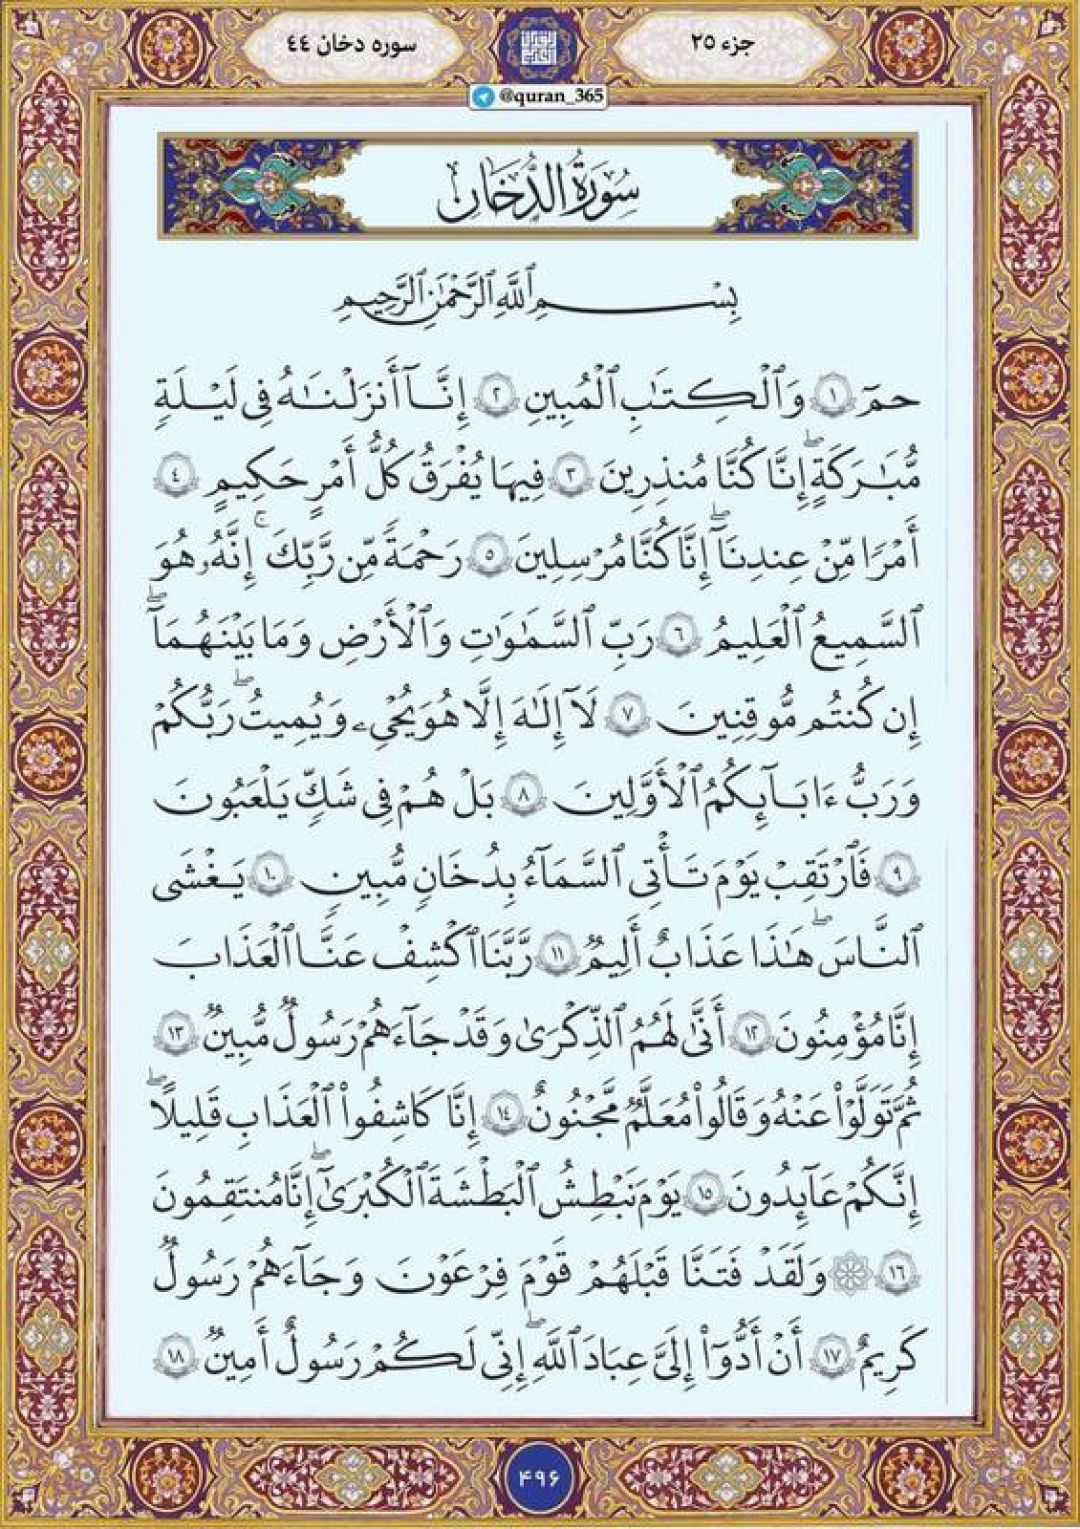 جزء ۲۵
سوره دخان ۴۴
@quran_365
سُورَةُ الدُّخَان
بِسْمِ ٱللَّهِ ٱلرَّحْمَـٰنِ ٱلرَّحِيمِ
حمٓ ١ وَٱلْكِتَـٰبِ ٱلْمُبِينِ ٢ إِنَّآ أَنزَلْنَـٰهُ فِى لَيْلَةٍ
مُّبَـٰرَكَةٍ ۖ إِنَّا كُنَّا مُنذِرِينَ ٣ فِيهَا يُفْرَقُ كُلُّ أَمْرٍ حَكِيمٍ ٤
أَمْرًا مِّنْ عِندِنَآ ۖ إِنَّا كُنَّا مُرْسِلِينَ ٥ رَحْمَةً مِّن رَّبِّكَ ۚ إِنَّهُۥ هُوَ
ٱلسَّمِيعُ ٱلْعَلِيمُ ٦ رَبِّ ٱلسَّمَـٰوَٰتِ وَٱلْأَرْضِ وَمَا بَيْنَهُمَآ ۖ
إِن كُنتُم مُّوقِنِينَ ٧ لَآ إِلَـٰهَ إِلَّا هُوَ يُحْىِۦ وَيُمِيتُ ۖ رَبُّكُمْ
وَرَبُّ ءَابَآئِكُمُ ٱلْأَوَّلِينَ ٨ بَلْ هُمْ فِى شَكٍّ يَلْعَبُونَ
٩ فَٱرْتَقِبْ يَوْمَ تَأْتِى ٱلسَّمَآءُ بِدُخَانٍ مُّبِينٍ ١٠ يَغْشَى
ٱلنَّاسَ ۖ هَـٰذَا عَذَابٌ أَلِيمٌ ١١ رَّبَّنَا ٱكْشِفْ عَنَّا ٱلْعَذَابَ
إِنَّا مُؤْمِنُونَ ١٢ أَنَّىٰ لَهُمُ ٱلذِّكْرَىٰ وَقَدْ جَآءَهُمْ رَسُولٌ مُّبِينٌ ١٣
ثُمَّ تَوَلَّوْا۟ عَنْهُ وَقَالُوا۟ مُعَلَّمٌ مَّجْنُونٌ ١٤ إِنَّا كَاشِفُوا۟ ٱلْعَذَابِ قَلِيلًا ۖ
إِنَّكُمْ عَآئِدُونَ ١٥ يَوْمَ نَبْطِشُ ٱلْبَطْشَةَ ٱلْكُبْرَىٰٓ ۖ إِنَّا مُنتَقِمُونَ
١٦ ۞ وَلَقَدْ فَتَنَّا قَبْلَهُمْ قَوْمَ فِرْعَوْنَ وَجَآءَهُمْ رَسُولٌ
كَرِيمٌ ١٧ أَنْ أَدُّوٓا۟ إِلَىَّ عِبَادَ ٱللَّهِ ۖ إِنِّى لَكُمْ رَسُولٌ أَمِينٌ ١٨
۴۹۶